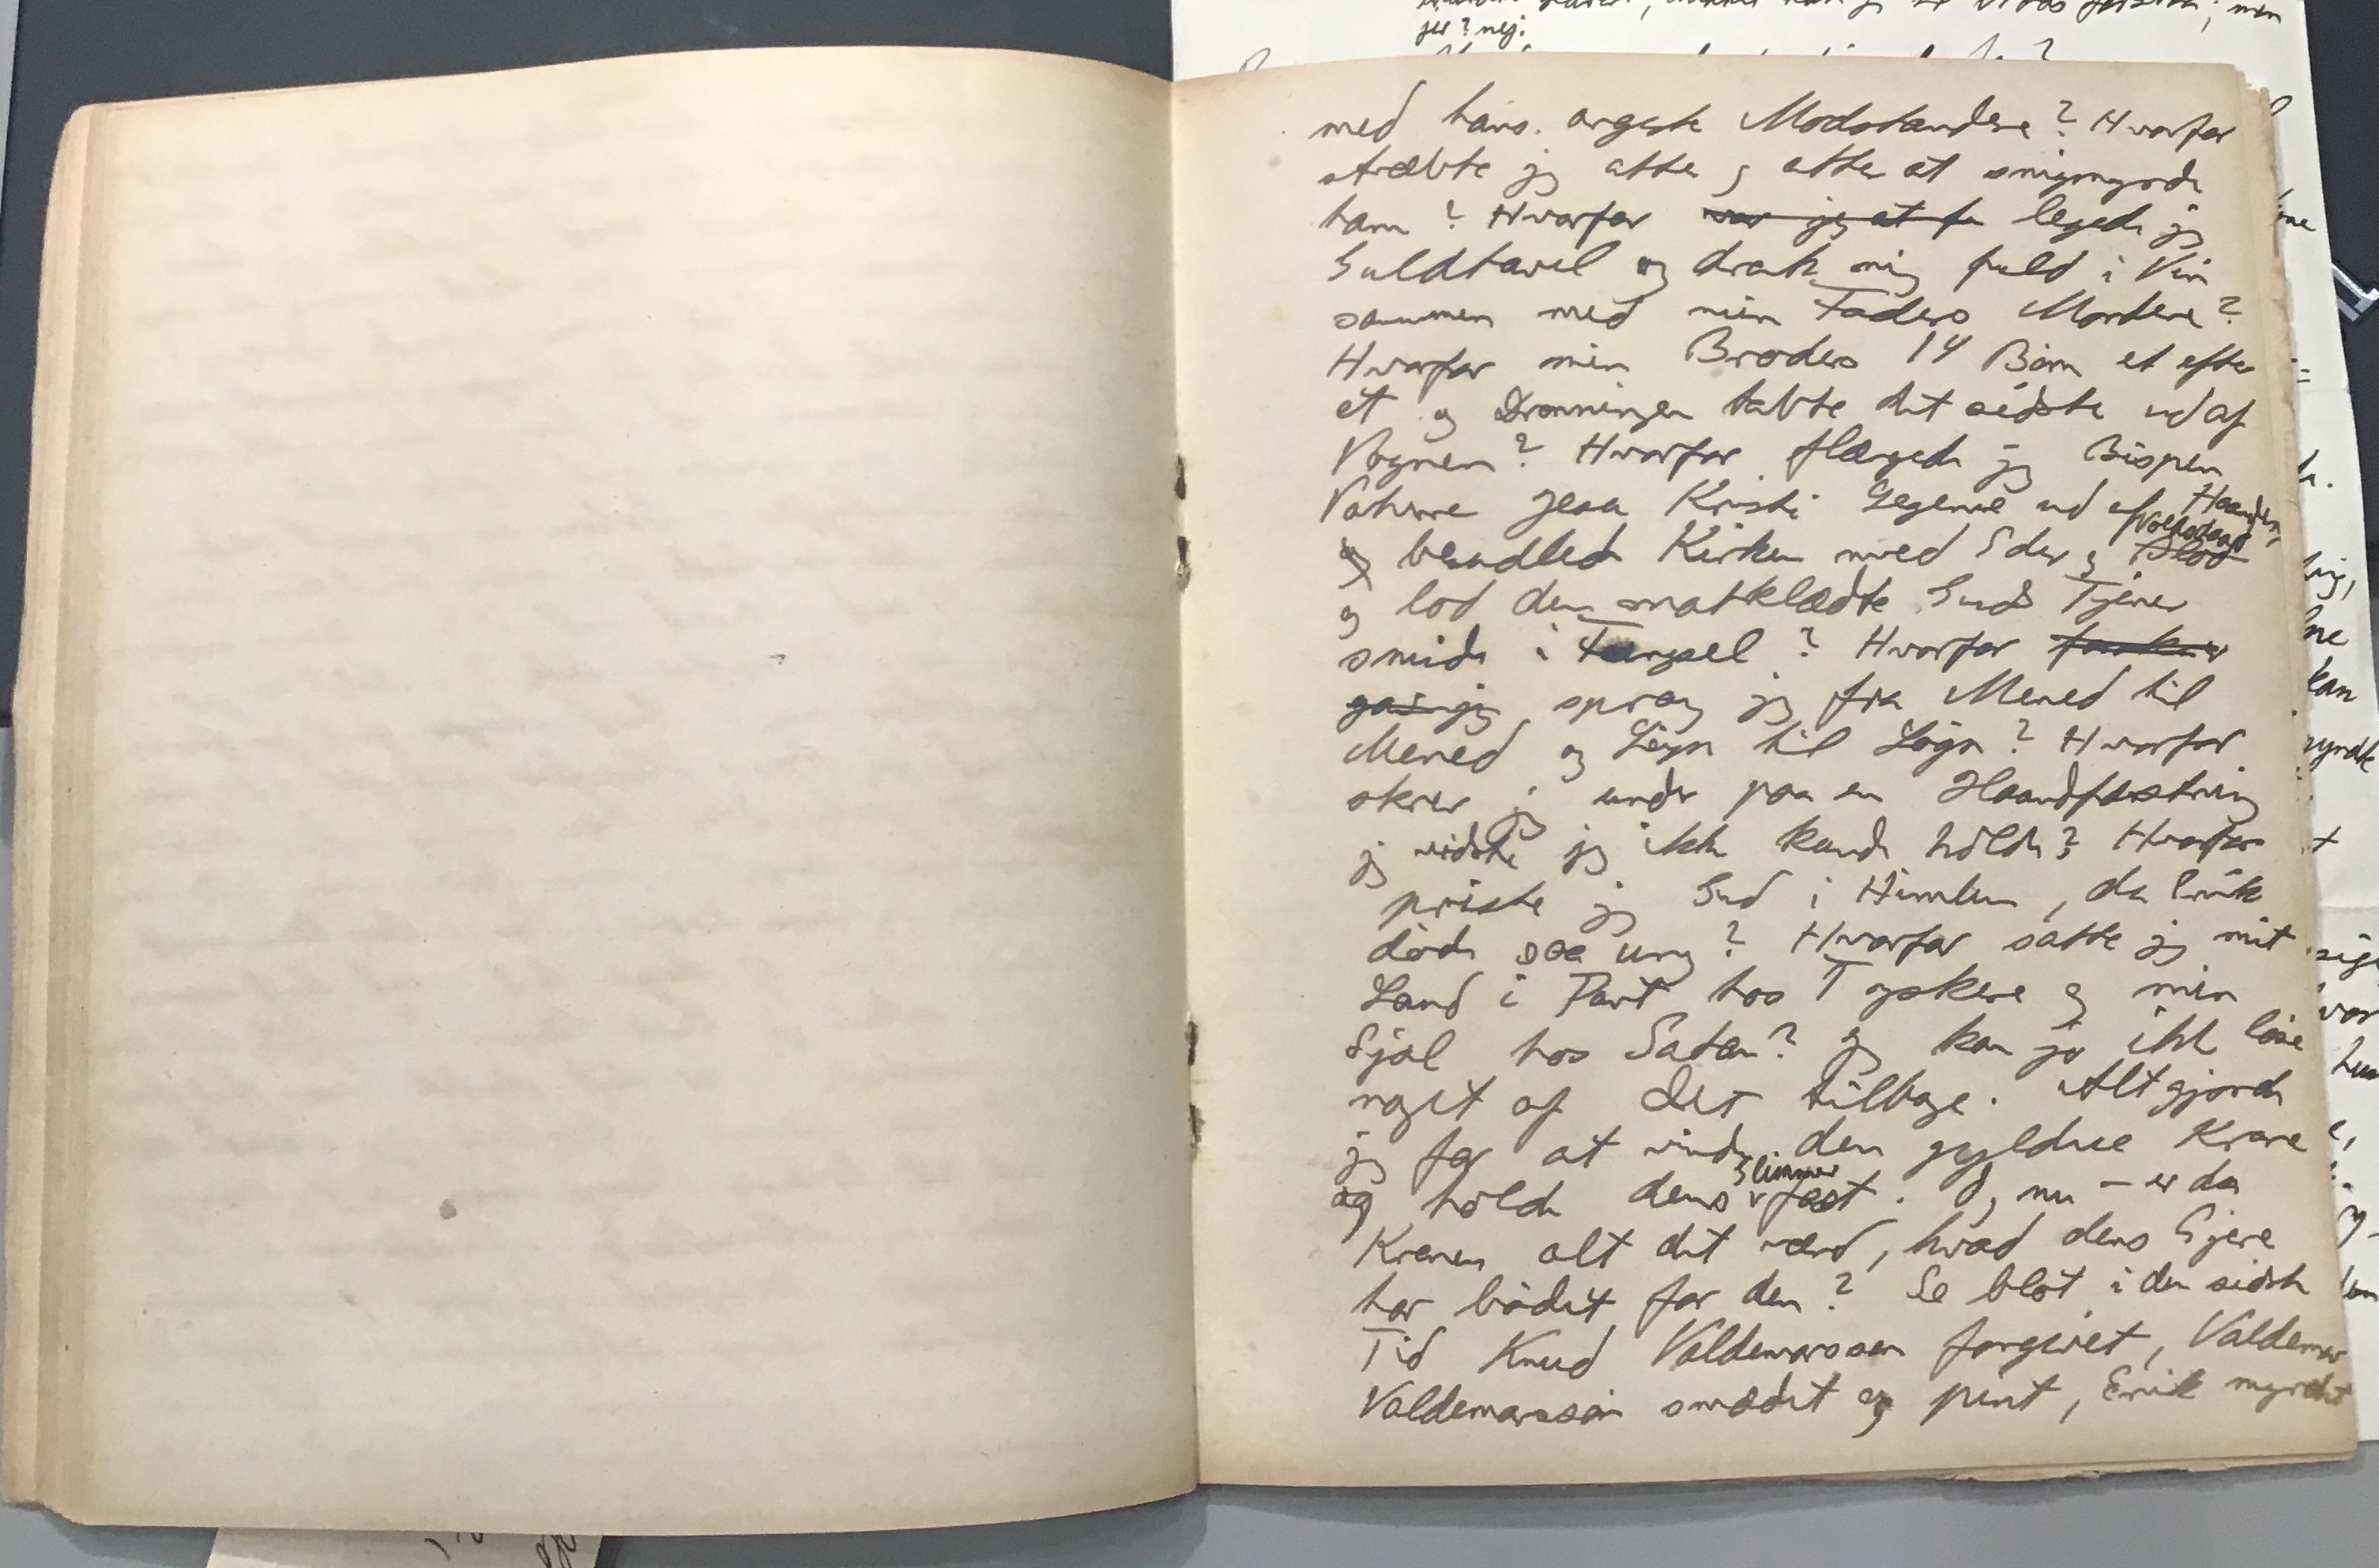 med hans argeste Modstandere? Hvorfor
stræbte jeg atter og atter at snigmyrde
ham? Hvorfor var jeg at legede jeg
Guldtavel og drak mig fuld i Vin
sammen med min Faders Mordere?
Hvorfor min Broders 14 Børn et efter
et og Dronningen tabte det sidste ud af
Vognen? Hvorfor flængede jeg Bispen
Jesu Kristi Legeme ud af Haanden,
og besudlede Kirken med Eder og Blod Voldsdaad
og lod den matklædte Guds Tjener
smide i Fængsel? Hvorfor
gav jeg sprang jeg fra Mened til
Mened og Løgn til Løgn? Hvorfor
skrev jeg under paa en Haandfæstning
jeg vidste jeg ikke kunde holde? Hvorfor
priste jeg Gud i Himlen, da Erik
døde saa ung? Hvorfor satte jeg mit
Land i Pant hos Tyskere og min
Sjæl hos Satan? Jeg kan jo ikke løse
noget af det tilbage. Alt gjorde
jeg for at vinde den gyldne Krone
og holde dens Glimmer fast. Og nu – er da
Kronen alt det værd, hvad dens Ejere
har bødet for den? Se blot i den sidste
Tid Knud Valdemarssøn forgivet, Valdemar
Valdemarssøn smædet og pint, Erik myrdet